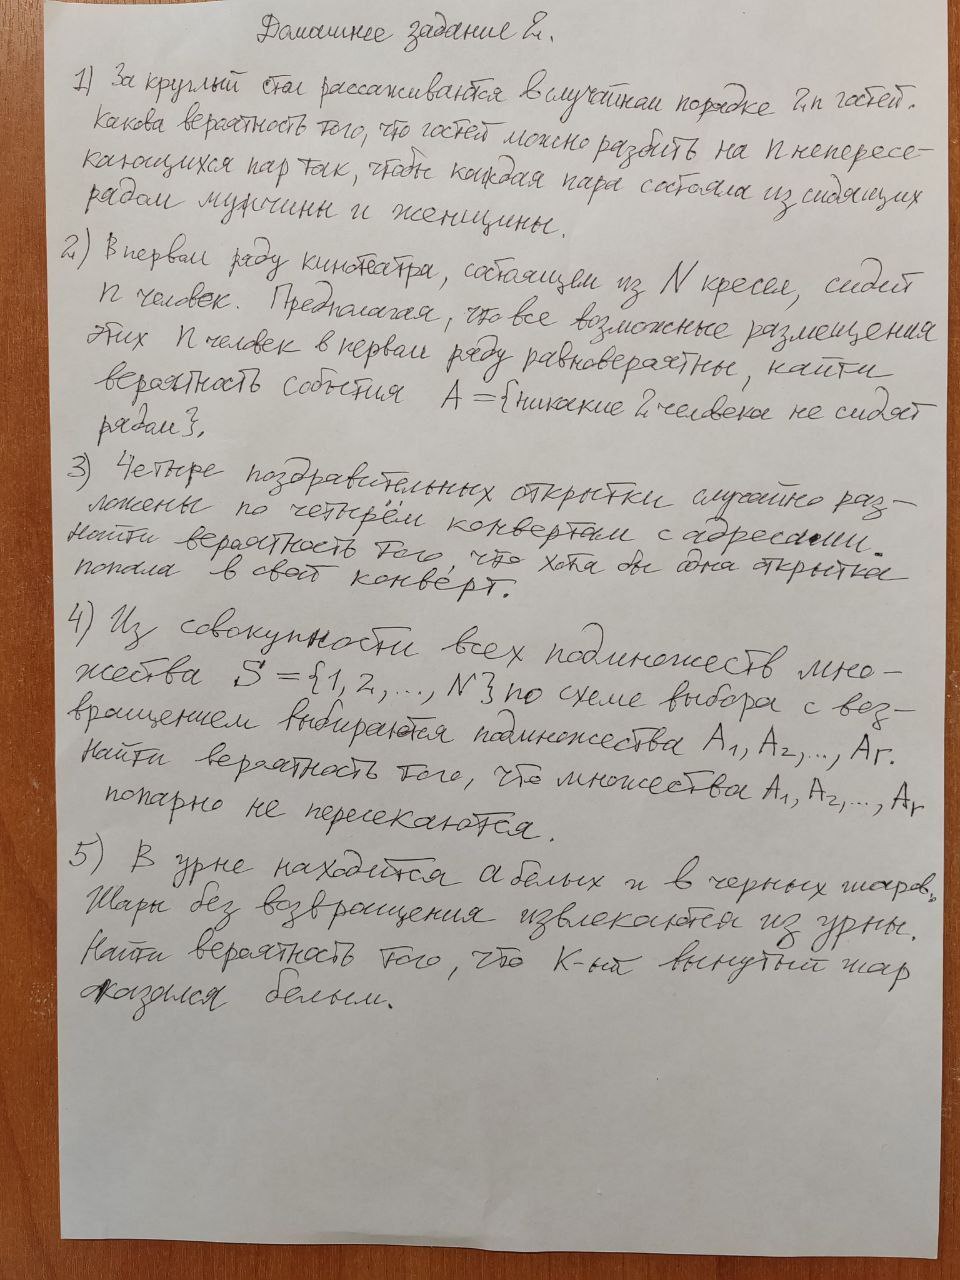 Домашнее задание 2.
1) За круглый стол рассаживаются в случайном порядке 2n гостей.
Какова вероятность того, что гостей можно разбить на n непересе-
кающихся пар так, чтобы каждая пара состояла из сидящих
рядом мужчины и женщины.
2) В первом ряду кинотеатра, состоящем из N кресел, сидит
n человек. Предполагая, что все возможные размещения
этих n человек в первом ряду равновероятны, найти
вероятность события A = {никакие 2 человека не сидят
рядом}.
3) Четыре поздравительных открытки случайно раз-
ложены по четырём конвертам с адресами.
Найти вероятность того, что хотя бы одна открытка
попала в свой конверт.
4) Из совокупности всех подмножеств мно-
жества S = {1, 2, ..., N} по схеме выбора с воз-
вращением выбираются подмножества A₁, A₂, ..., Aᵣ.
Найти вероятность того, что множества A₁, A₂, ..., Aᵣ
попарно не пересекаются.
5) В урне находится a белых и в черных шаров.
Шары без возвращения извлекаются из урны.
Найти вероятность того, что k-ый вынутый шар
оказался белым.